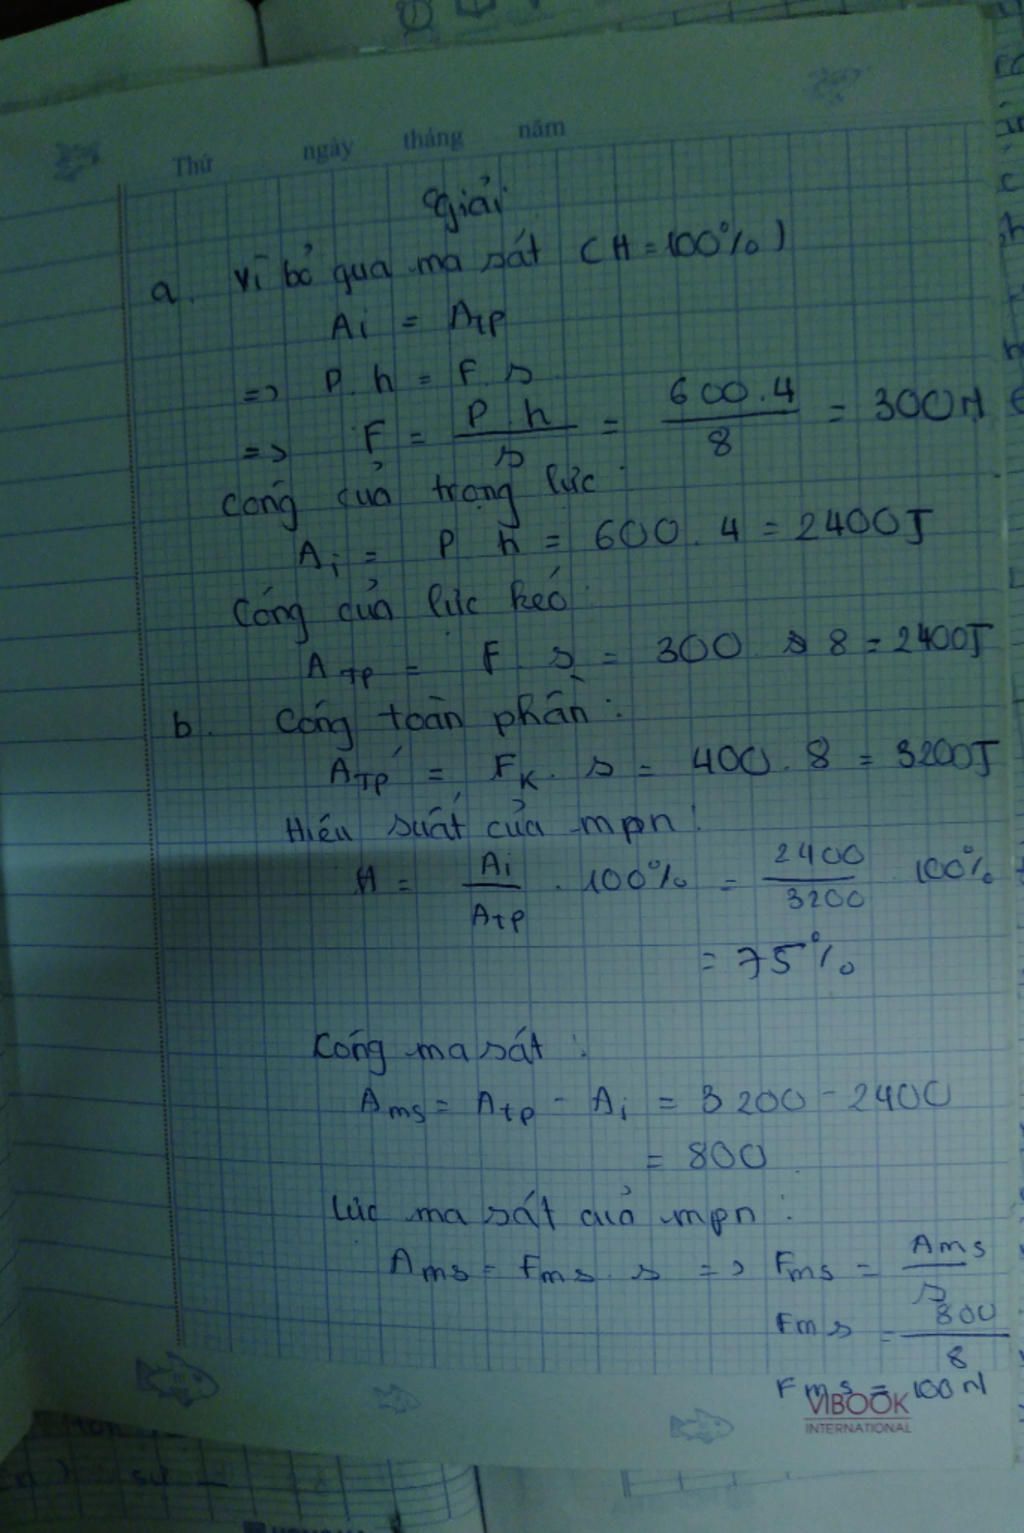 Thứ ngày tháng năm
Giải
a. Vì bỏ qua ma sát (H = 100%)
Ai = Atp
=> P.h = F.s
=> F = P.h / s = 600.4 / 8 = 300N
Công của trọng lực:
Ai = P h = 600.4 = 2400J
Công của lực kéo:
ATP = F.s = 300.8 = 2400J
b. Công toàn phần:
ATP' = FK.s = 400.8 = 3200J
Hiệu suất của mpn:
H = Ai / Atp . 100% = 2400 / 3200 100%
= 75%
Công ma sát:
Ams = Atp - Ai = 3200 - 2400
= 800
Lực ma sát của mpn:
Ams = Fms.s => Fms = Ams / s
Fms = 800 / 8
Fms = 100N
VIBOOK
INTERNATIONAL